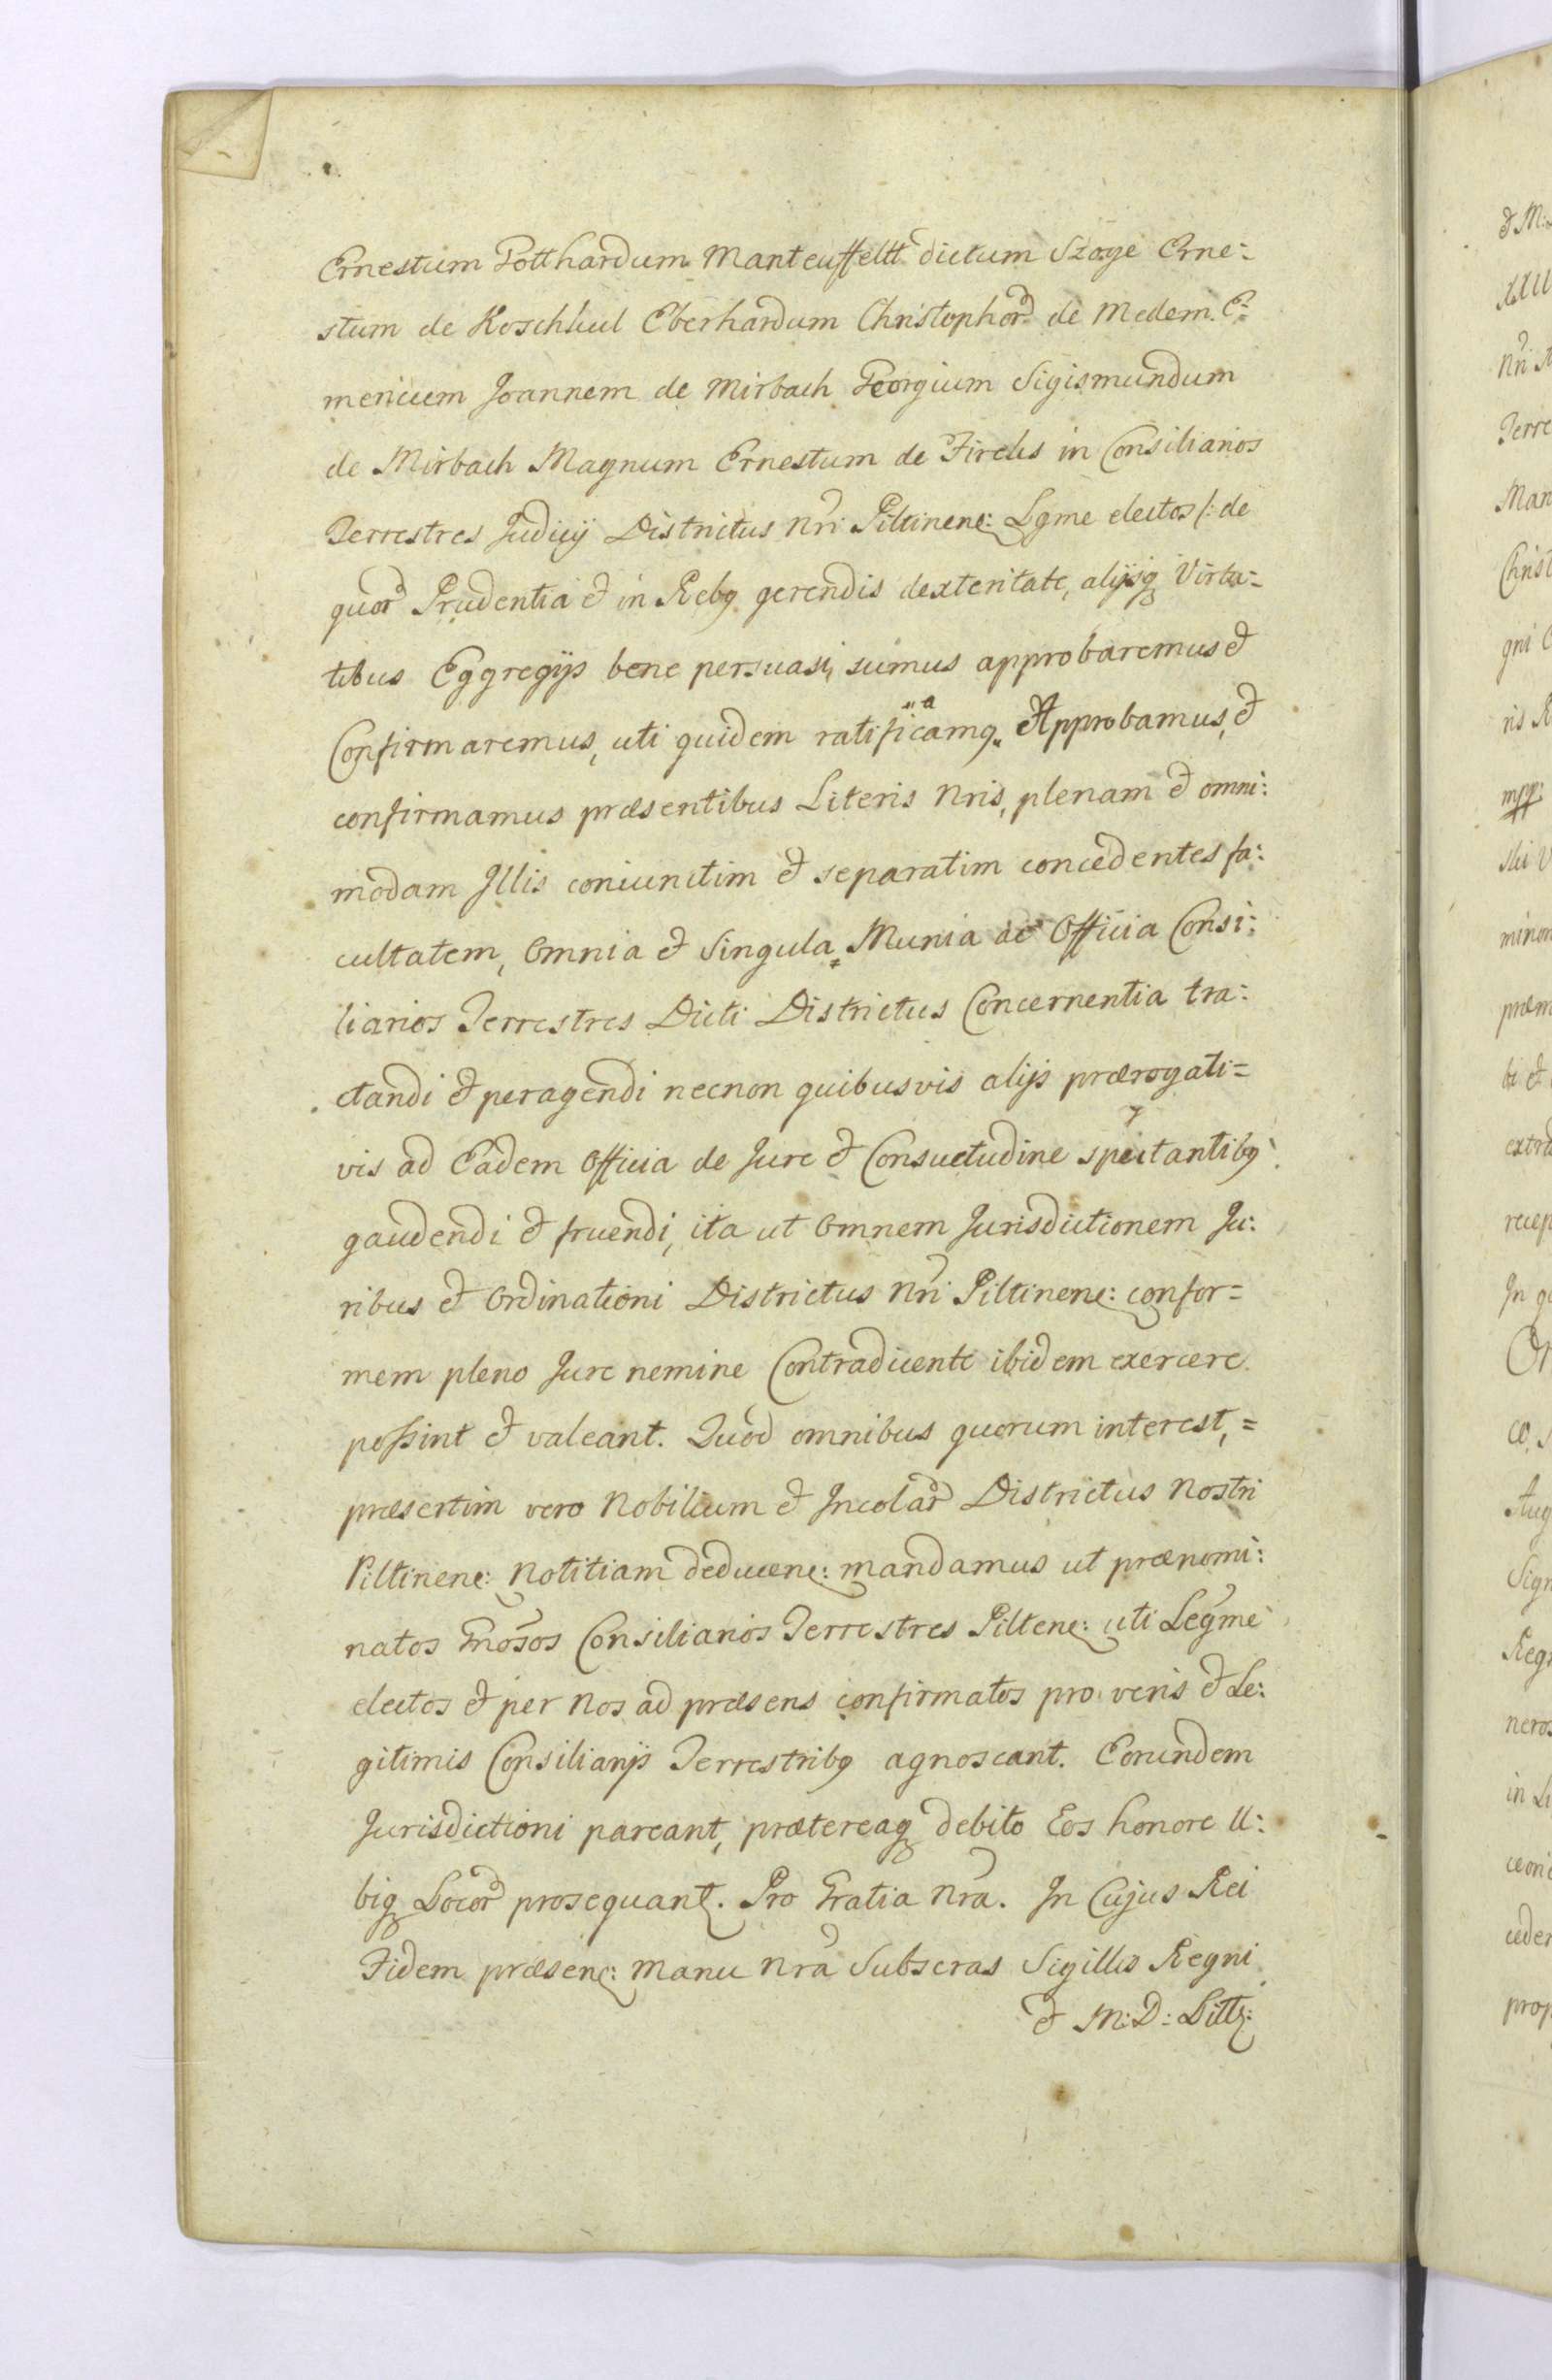 Ernestum Gotthardum Manteuffeltt dictum Szoge Erne:
stum de Koschkul Eberhardum Christophor de Medem. E:
mericum Joannem de Mirbach Georgium Sigismundum
de Mirbach Magnum Ernestum de Fircks in Consiliarios
Terrestres Judicij Districtus Nri Piltinene: Lgme electos /: de
quor Prudentia et in Rebq gerendis dexteritate, alijsq Virtu=
tibus Eggregijs bene persuasi, sumus approbaremus et
Confirmaremus, uti quidem ratificamq. Approbamus, et
confirmamus præsentibus Literis Nris, plenam et omni:
modam Illis coniunctim et separatim concedentes fa:
cultatem, Omnia et Singula Munia ac Officia Consi:
liarios Terrestres Dicti Districtus Concernentia tra:
ctandi et peragendi necnon quibusvis alijs prærogati=
vis ad Eadem Officia de Jure et Consuetudine spectantibq
gaudendi et fruendi, ita ut Omnem Jurisdictionem Ju:
ribus et Ordinationi Districtus Nri Piltinene: confor=
mem pleno Jure nemine Contradicente ibidem exercere
possint et valeant. Quod omnibus quorum interest, =
præsertim vero Nobilium et Incolar Districtus Nostri
Piltinene: Notitiam deducene: mandamus ut prænomi:
natos Gnosos Consiliarios Terrestres Piltene: uti Legme
electos et per Nos ad præsens confirmatos pro veris et Le:
gitimis Consiliarijs Terrestribq agnoscant. Eorundem
Jurisdictioni pareant, prætereaq debito Eos honore U:
biq Locor prosequant. Pro Gratia Nra. In Cujus Rei
Fidem præsene: Manu Nra Subscras Sigillis Regni
et M: D: Litt: